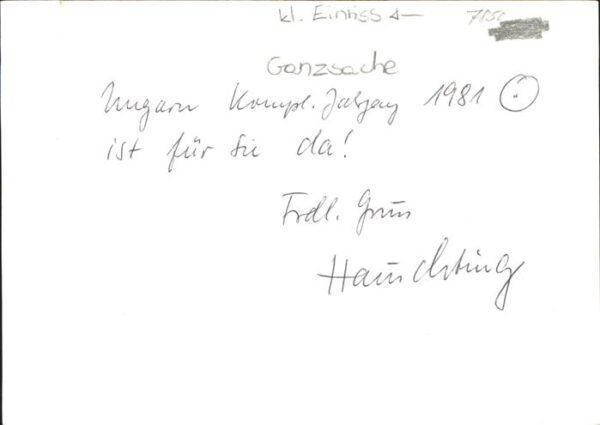 kl. Einriss ←
Ganzsache
Ungarn Kompl. Jahrgang 1981 ⊙
ist für Sie da!
Frdl. Gruss